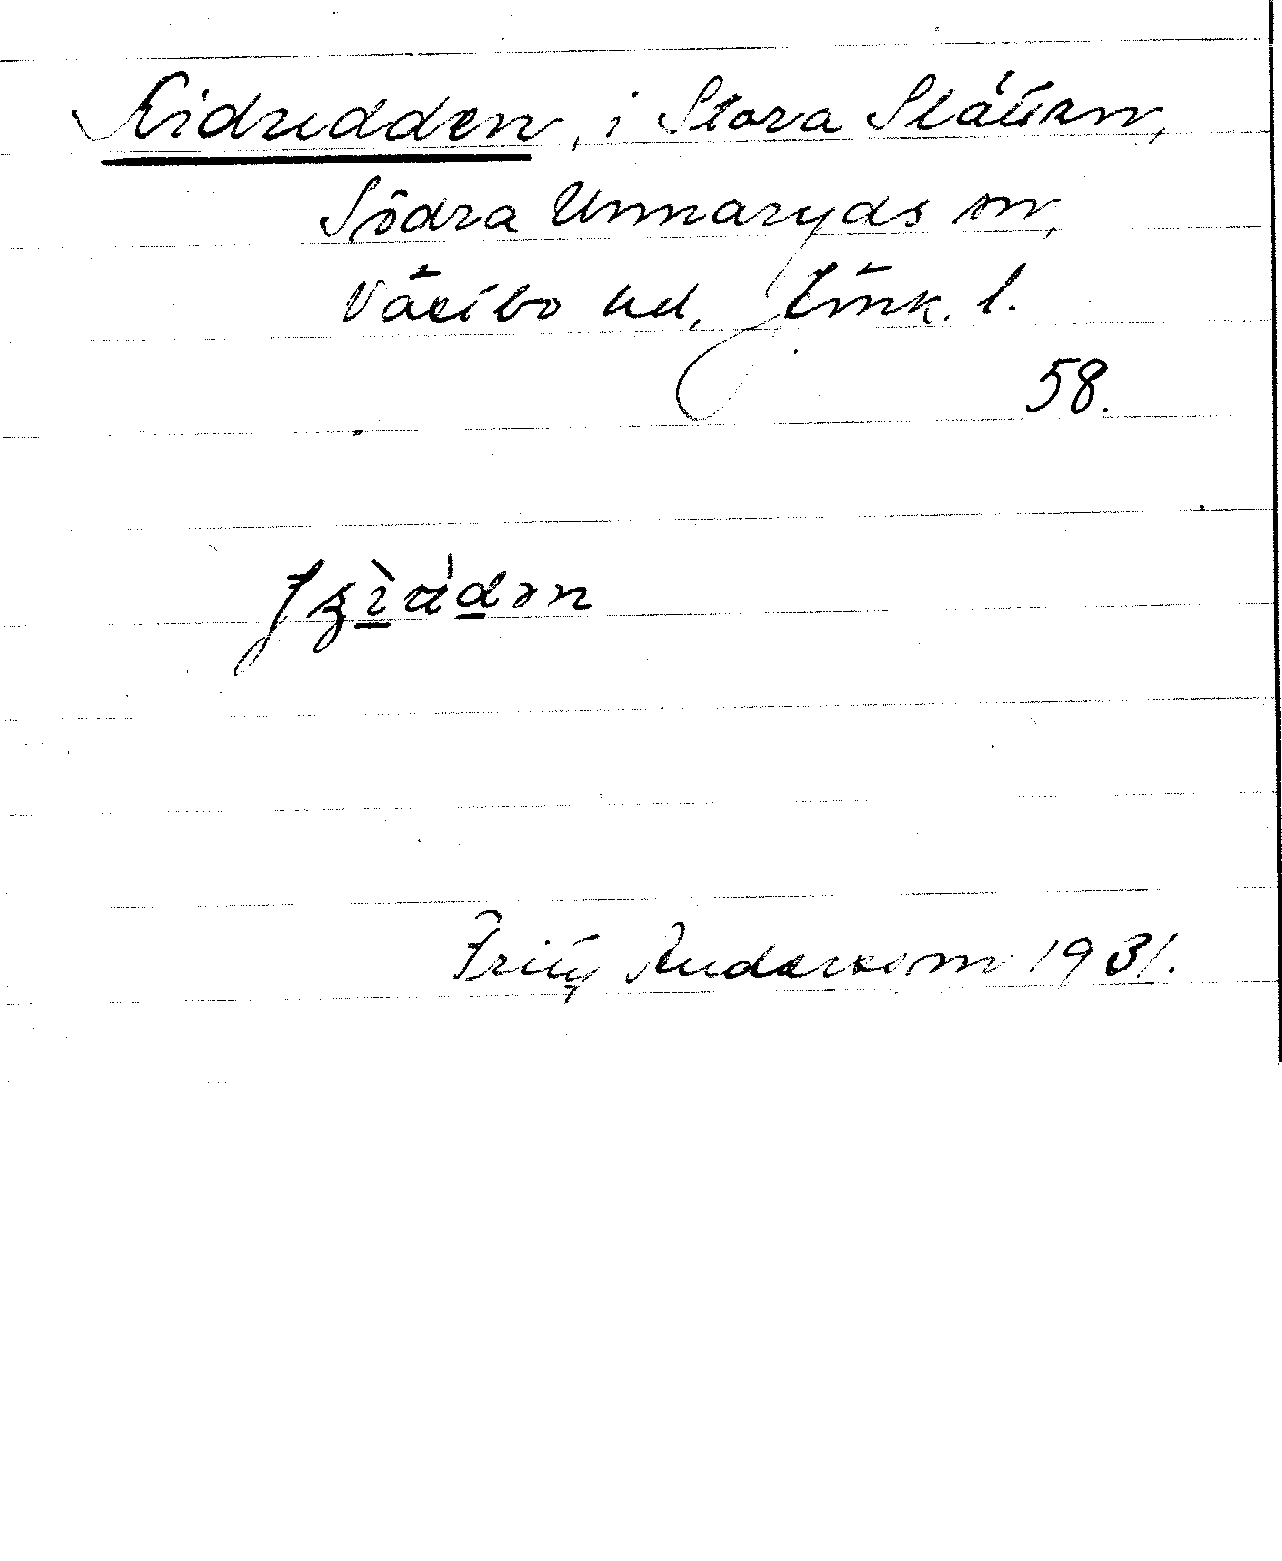 Kidudden, i Stora Slätten,
Södra Unnaryds sn,
Västbo hd, Jönk. l.
58.
Fritz Andersson 1931.